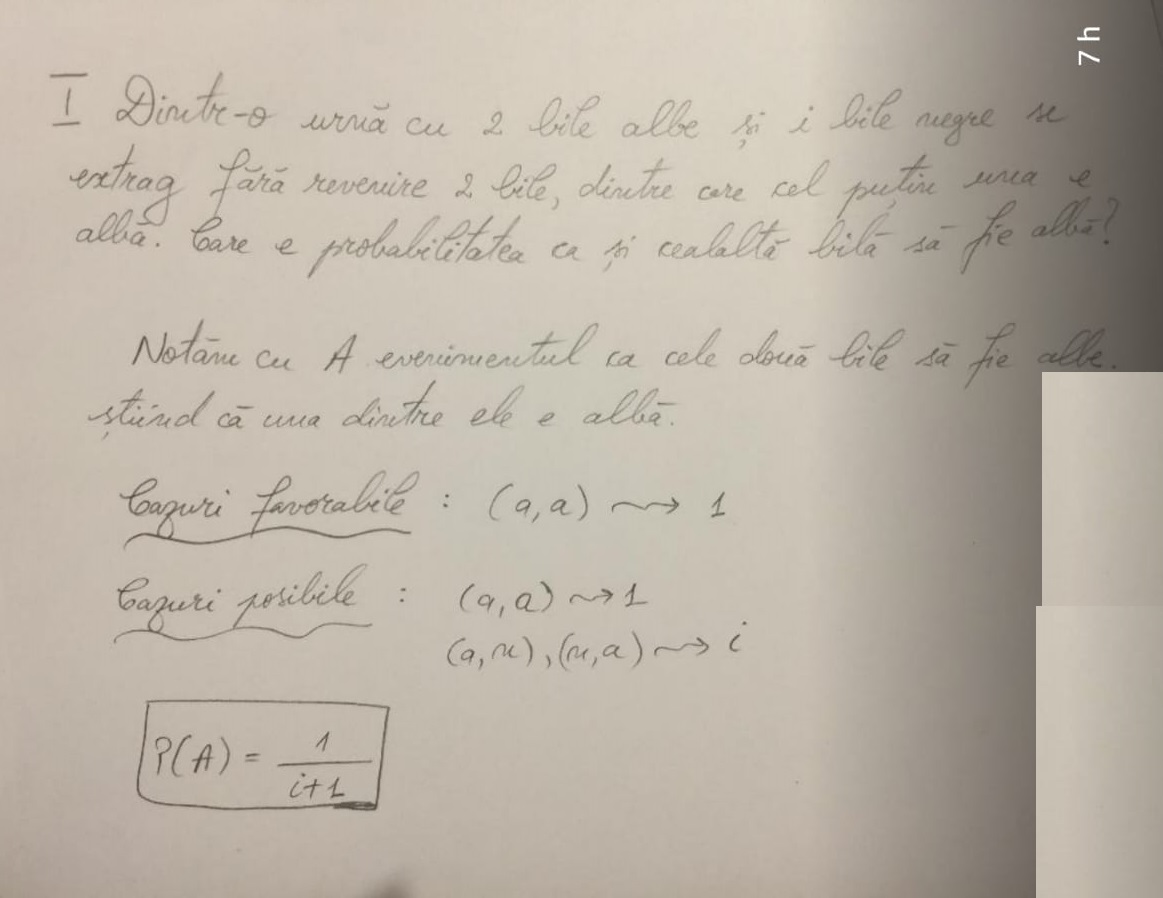 7 h
I Dintr-o urnă cu 2 bile albe și i bile negre se
extrag fără revenire 2 bile, dintre care cel puțin una e
albă. Care e probabilitatea ca și cealaltă bilă să fie albă?
Notăm cu A evenimentul ca cele două bile să fie albe.
știind că una dintre ele e albă.
Cazuri favorabile : (a,a) ⟿ 1
Cazuri posibile : (a,a) ⟿ 1
(a,n), (n,a) ⟿ i
P(A) = 1/(i+1)